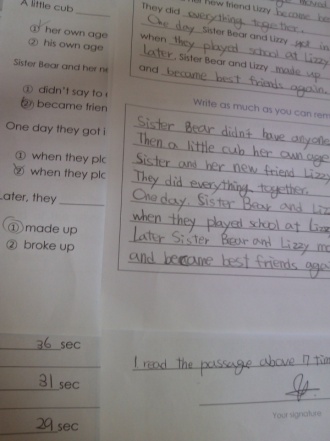 A little cub
① her own age
② his own age
Sister Bear and her ne
① didn't say to
② became frien
One day they got i
① when they pla
② when they pla
Later, they
① made up
② broke up
36 sec
31 sec
29 sec
her new friend Lizzy became be
They did everything together.
One day Sister Bear and Lizzy got in
when they played school at Lizzy
Later, Sister Bear and Lizzy made up
and became best friends again.
Write as much as you can rem
Sister Bear didnt have anyone
Then a little cub her own age
Sister and her new friend Lizzy
They did everything together.
One day. Sister Bear and Liz
when they played school at Lizz
Later Sister Bear and Lizzy ma
and became best friends agai
I read the passage above 17 tim
Your signature